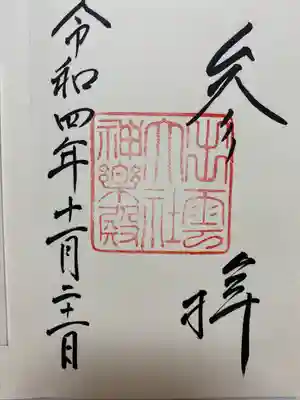 参拝
出雲
大社
神樂殿
令和四年十一月二十一日